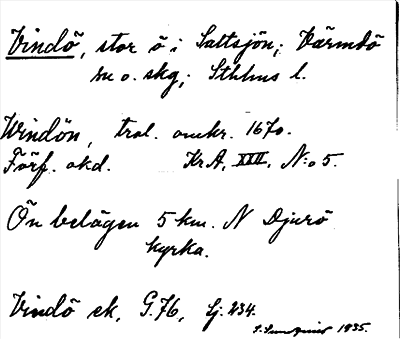 Vindö, stor ö i Saltsjön; Värmdö
sn o. skg; Sthlms l.
Windön, trol. omkr. 1670.
Förf. okd. KrA, XXII, N:o 5.
Ön belägen 5 km. N Djurö
kyrka.
Vindö ek, G.76, Lj. 234.
1935.